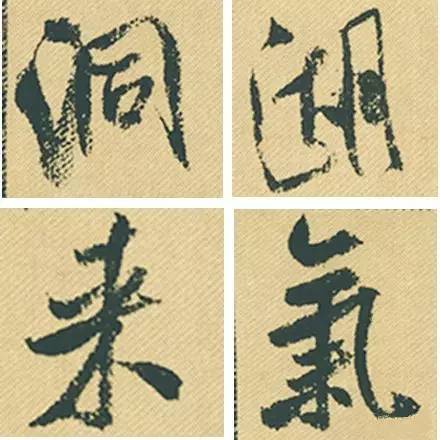 洞湖
来氣